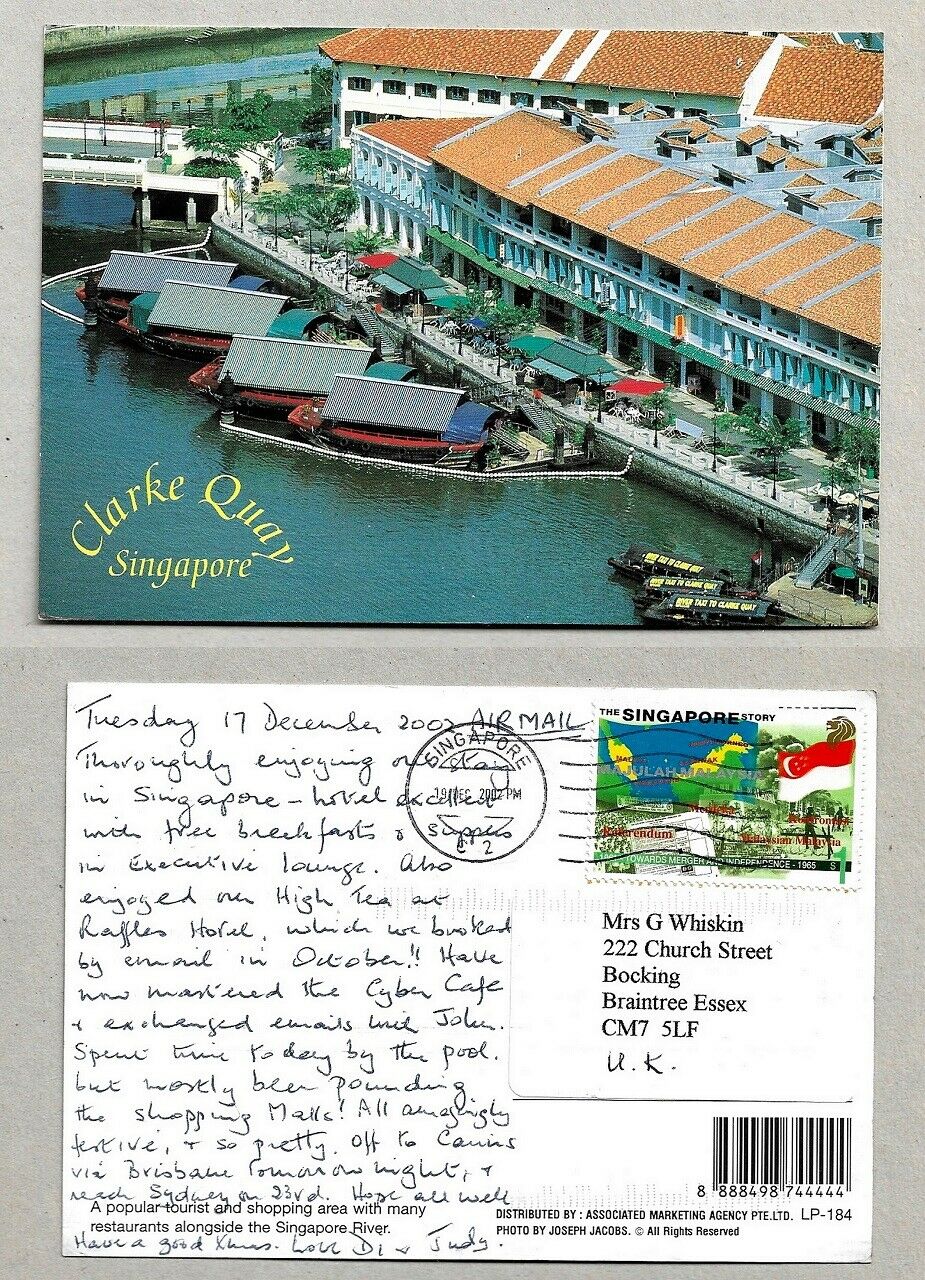 Clarke Quay
Singapore
RIVER TAXI TO CLARKE QUAY
RIVER TAXI TO CLARKE QUAY
Tuesday 17 December 2002 AIR MAIL
Thoroughly enjoying our stay
in Singapore – hotel excellent
with free breakfasts & suppers
in Executive lounge. Also
enjoyed our High Tea at
Raffles Hotel, which we booked
by email in October!! Have
now mastered the Cyber Cafe
& exchanged emails with John.
Spent time today by the pool.
but mostly been pounding
the shopping Malls! All amazingly
festive, & so pretty. Off to Cairns
via Brisbane tomorrow night, &
reach Sydney on 23rd. Hope all well
A popular tourist and shopping area with many
restaurants alongside the Singapore River.
Have a good Xmas. Love Di & Judy.
SINGAPORE
19 DEC 2002 PM
C 2
THE SINGAPORE STORY
MAJULAH MALAYSIA
Merdeka
Referendum
Malaysian Malaysia
TOWARDS MERGER AND INDEPENDENCE - 1965
S1
Mrs G Whiskin
222 Church Street
Bocking
Braintree Essex
CM7 5LF
U.K.
8 888498 744444
DISTRIBUTED BY : ASSOCIATED MARKETING AGENCY PTE.LTD. LP-184
PHOTO BY JOSEPH JACOBS. © All Rights Reserved